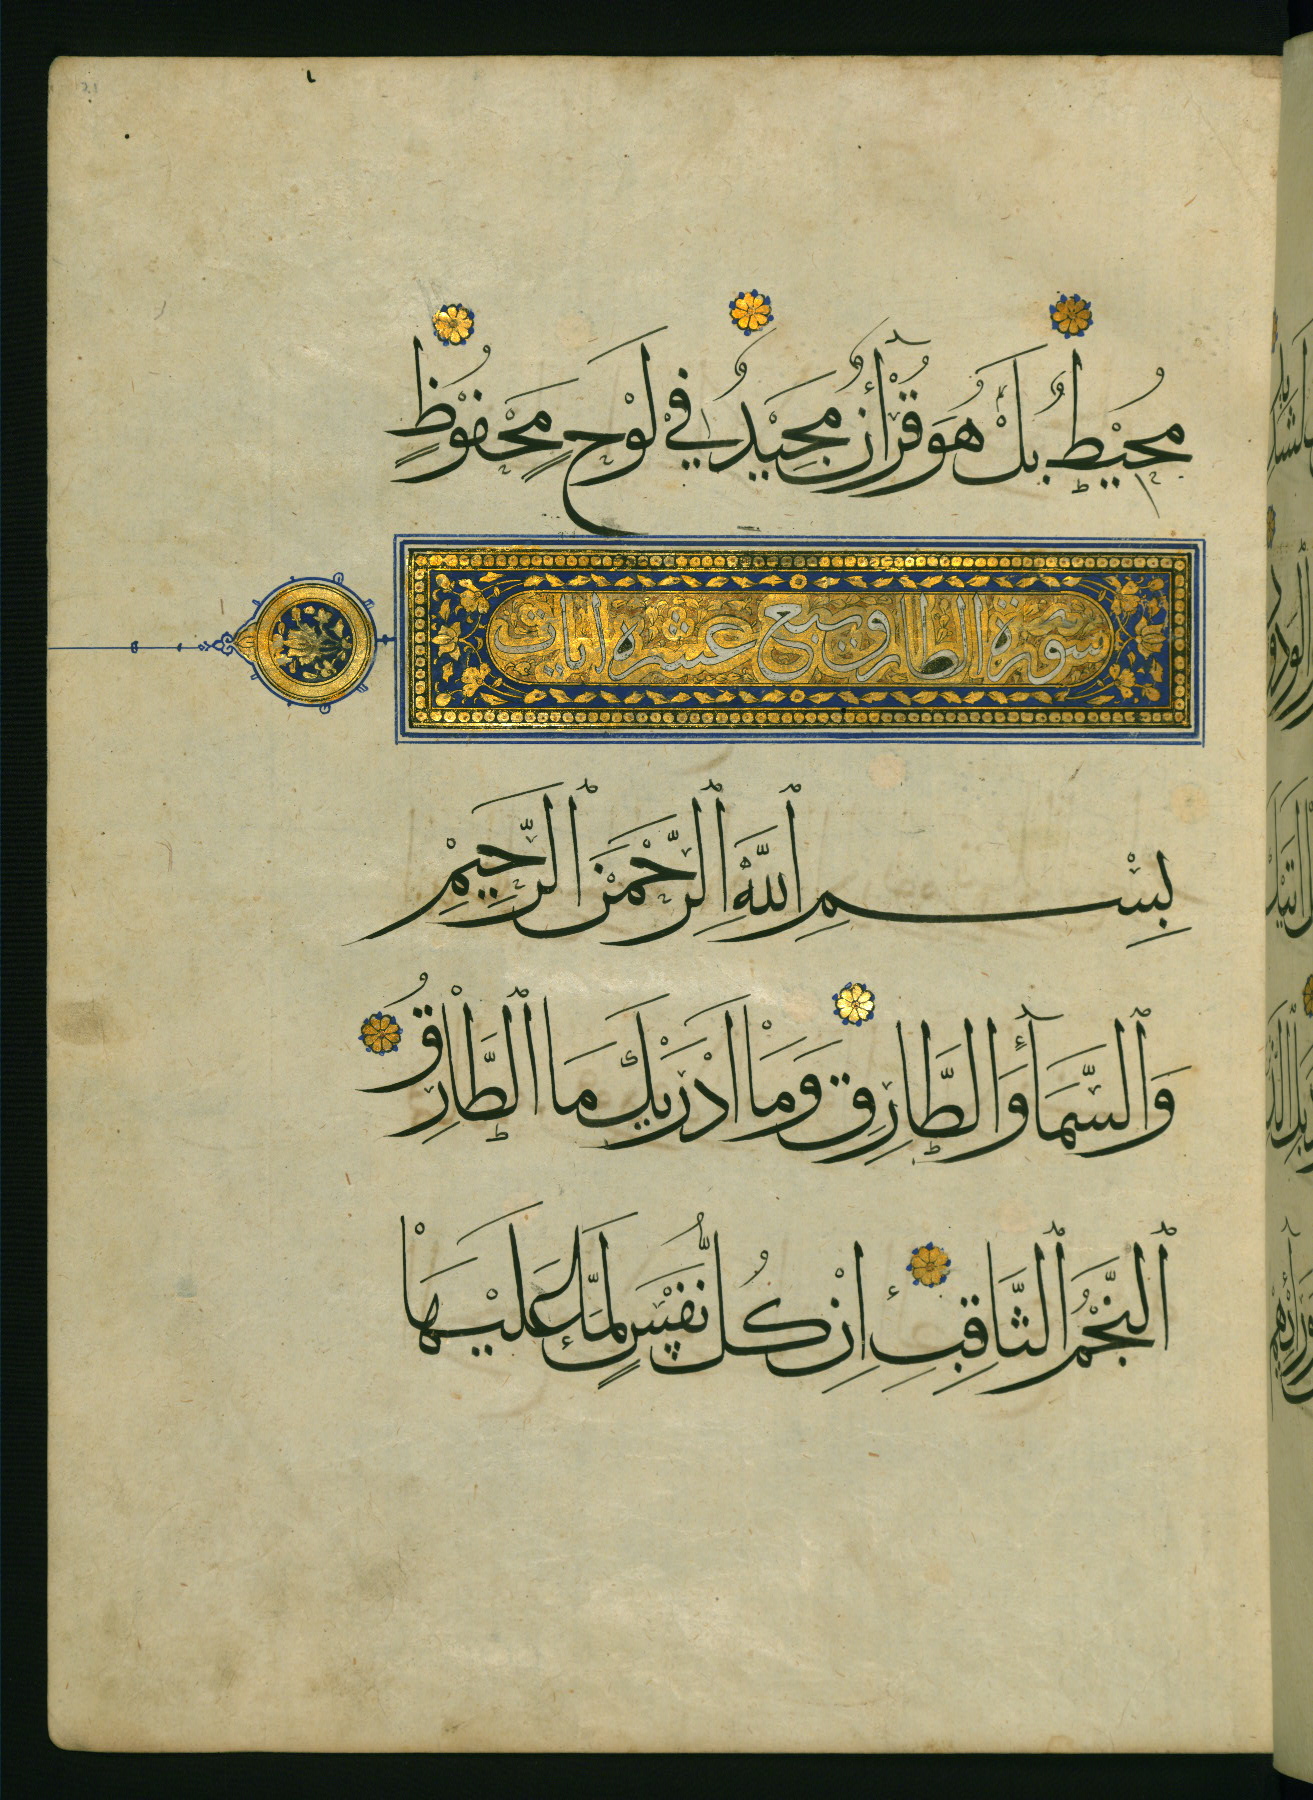 مُحِيْطٌ بَلْ هُوَ قُرْأٰنٌ مَجِيْدٌ فِيْ لَوْحٍ مَحْفُوْظٍ
سورة الطارق وسبع عشرة ايات
بِسْمِ اللّٰهِ الرَّحْمٰنِ الرَّحِيْمِ
وَالسَّمَآءِ وَالطَّارِقِ وَمَآ اَدْرٰيكَ مَا الطَّارِقُ
اَلنَّجْمُ الثَّاقِبُ اِنْ كُلُّ نَفْسٍ لَمَّا عَلَيْهَا